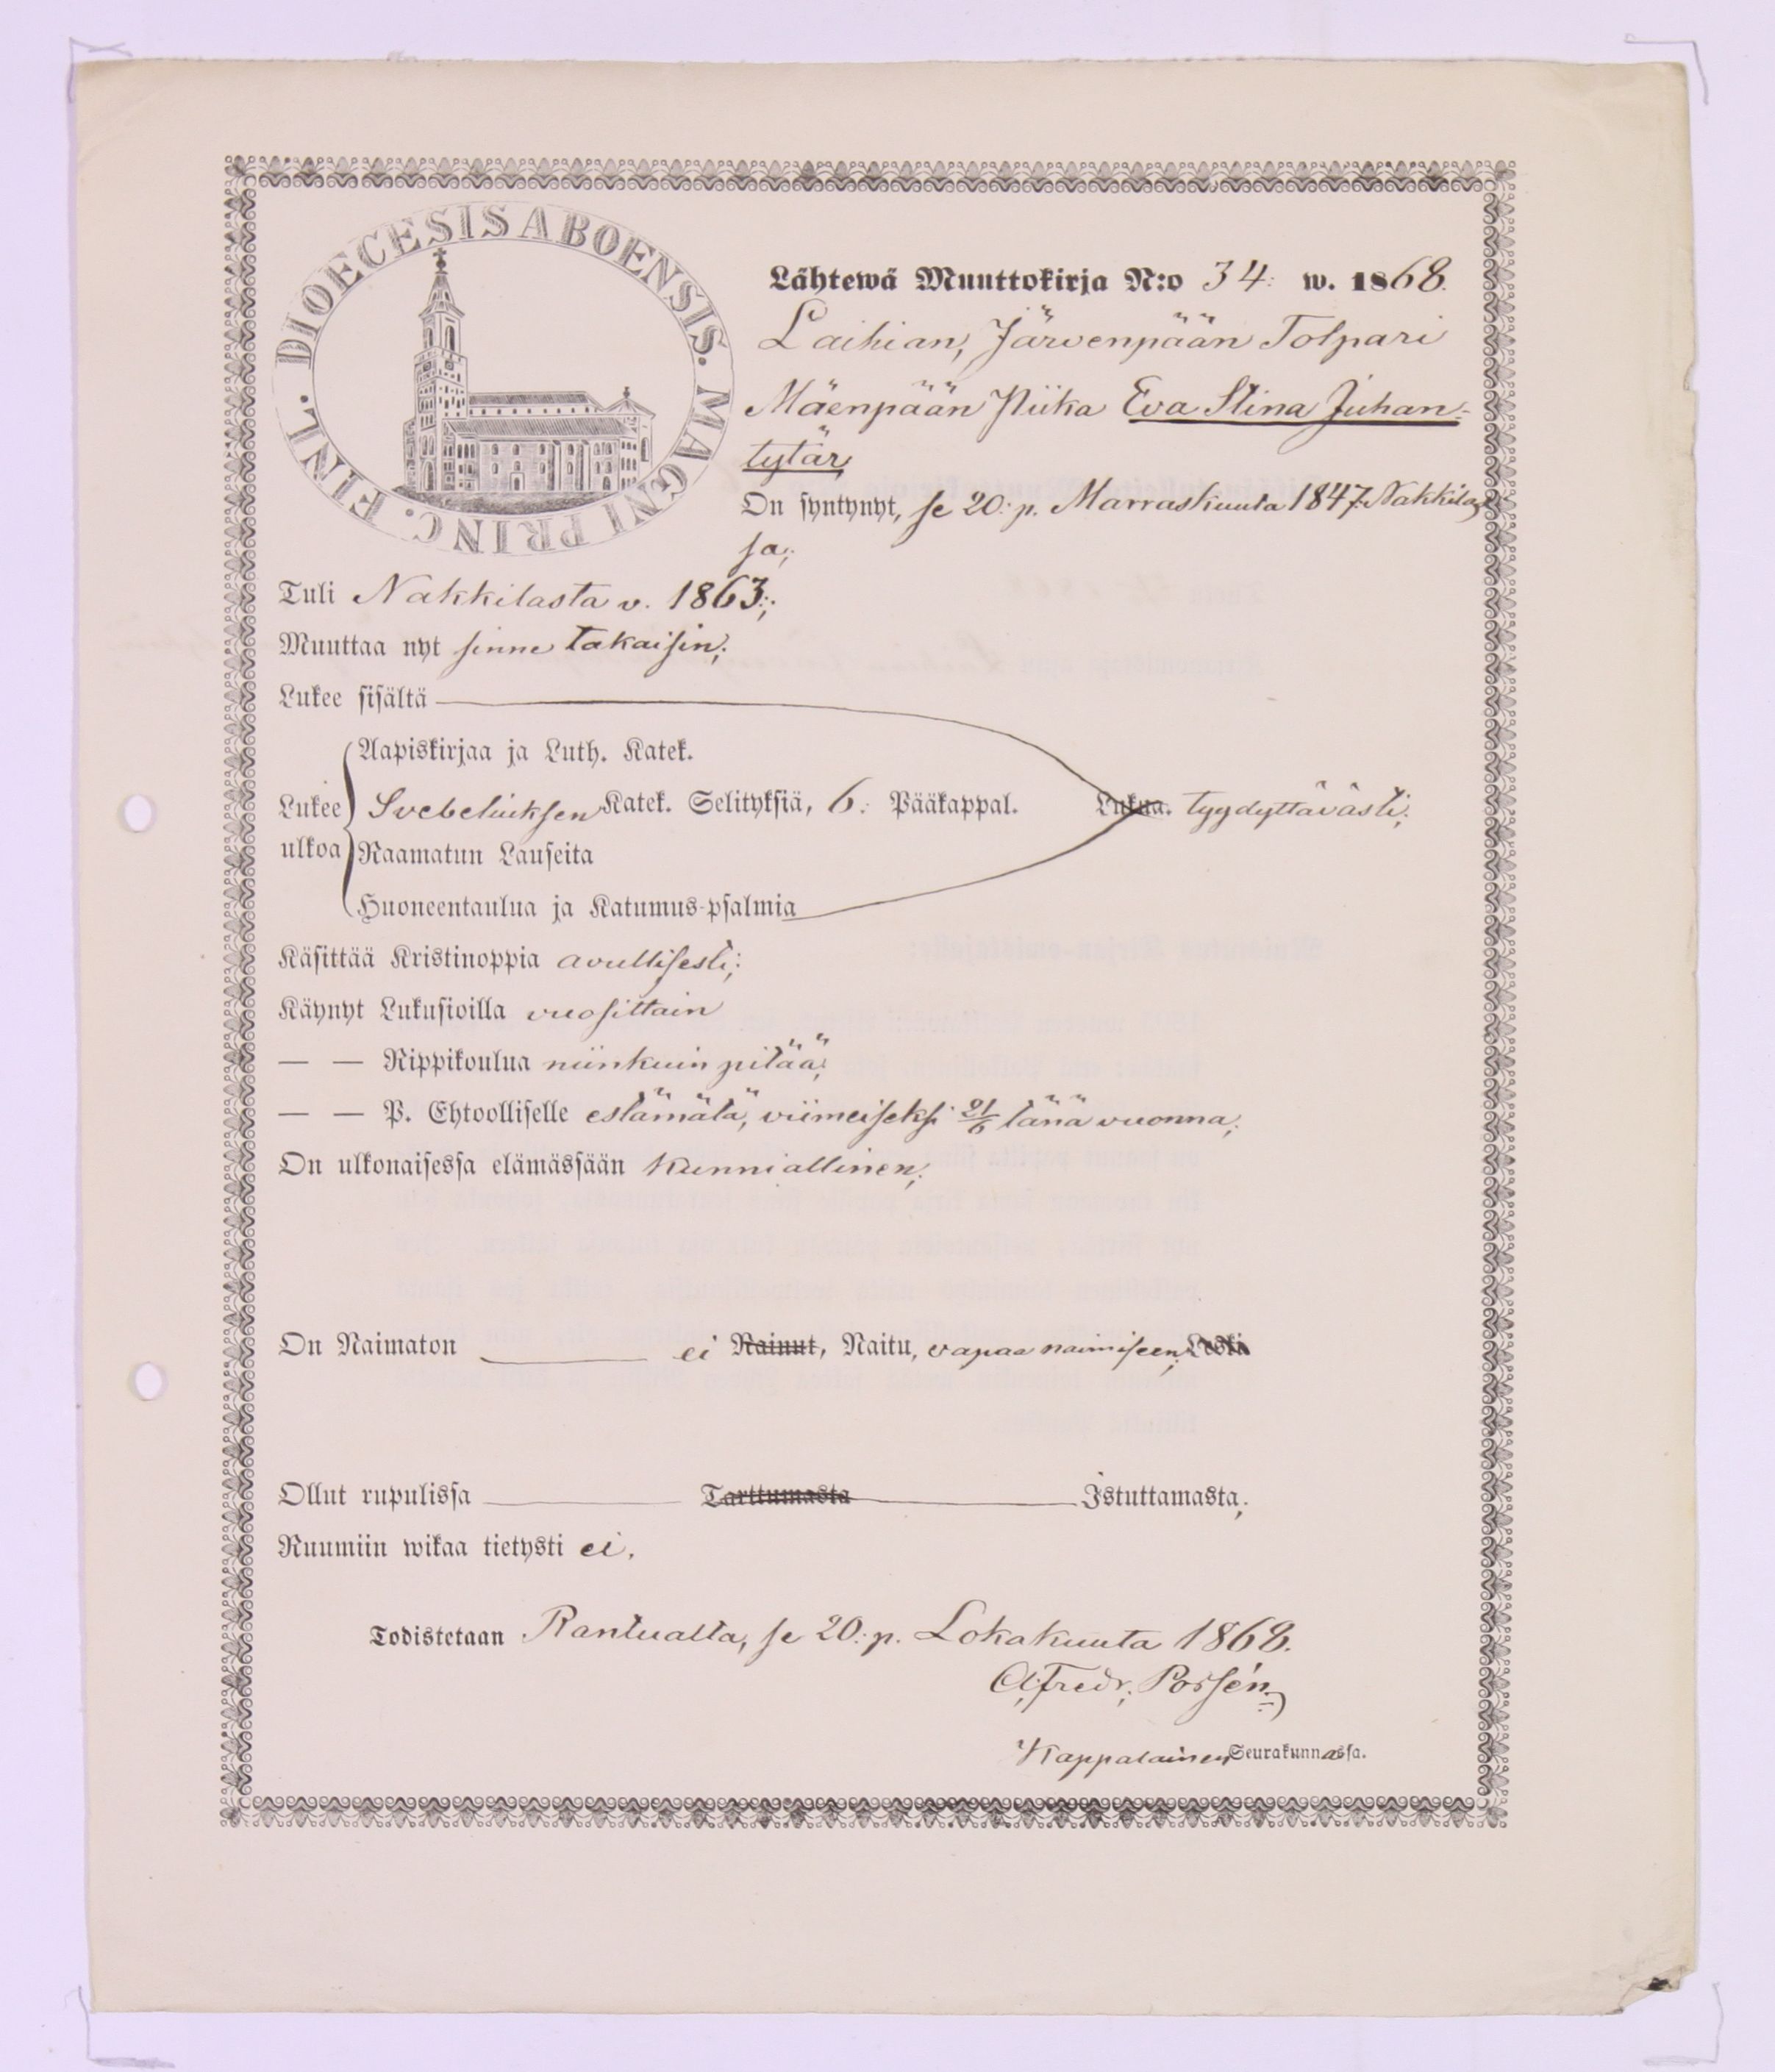 DIOECESIS ABOENSIS. MAGNI PRINC. FINL.
Lähtewä Muuttokirja N:o 34: w. 1868.
Laihian, Järvenpään Tolpari
Mäenpään Piika Eva Stina Juhan-
tytär,
On syntynyt, se 20:p. Marraskuuta 1847. Nakkilas-
sa;
Tuli Nakkilasta v. 1863;
Muuttaa nyt sinne takaisin;
Lukee sisältä
Aapiskirjaa ja Luth. Katek.
Lukee Svebeliuksen Katek. Selityksiä, 6: Pääkappal. Lukua. tyydyttävästi;
ulkoa Raamatun Lauseita
Huoneentaulua ja Katumus-psalmia
Käsittää Kristinoppia avullisesti;
Käynyt Lukusioilla vuosittain
— — Rippikoulua niinkuin pitää;
— — P. Ehtoolliselle estämätä, viimeiseksi 21/6 tänä vuonna;
On ulkonaisessa elämässään kunniallinen;
On Naimaton ei Nainut, Naitu, vapaa naimiseen; Leski
Ollut rupulissa Tarttumasta Istuttamasta;
Ruumiin wikaa tietysti ei.
Todistetaan Rantualta, se 20:p. Lokakuuta 1868.
Alfredr. Porsén
Kappalainen Seurakunnassa.